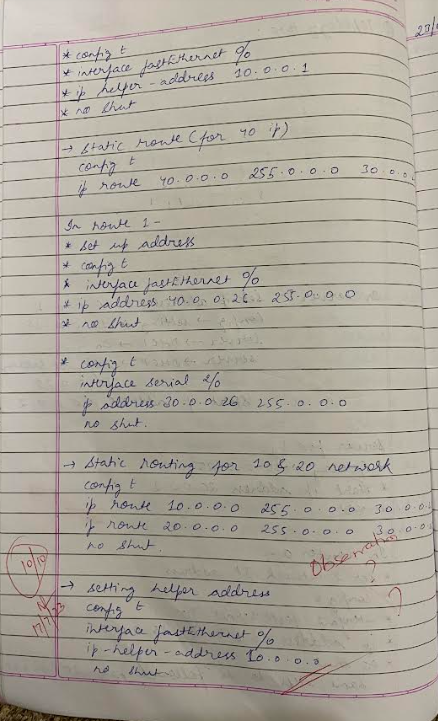 23/
* config t
* interface fastEthernet 0/0
* ip helper-address 10.0.0.1
* no shut
→ Static route (for 40 ip)
config t
ip route 40.0.0.0 255.0.0.0 30.0.0.
In route 1-
* set up address
* config t
* interface fastEthernet 0/0
* ip address 40.0.0.26 255.0.0.0
* no shut
* config t
interface serial 2/0
ip address 30.0.0.26 255.0.0.0
no shut.
→ Static routing for 10 & 20 network
config t
ip route 10.0.0.0 255.0.0.0 30.0.0.
ip route 20.0.0.0 255.0.0.0 30.0.0.
no shut.
Observation
?
10/10
→ setting helper address
?
config t
17/7/23
interface fastEthernet 0/0
ip-helper-address 10.0.0.0
no shut